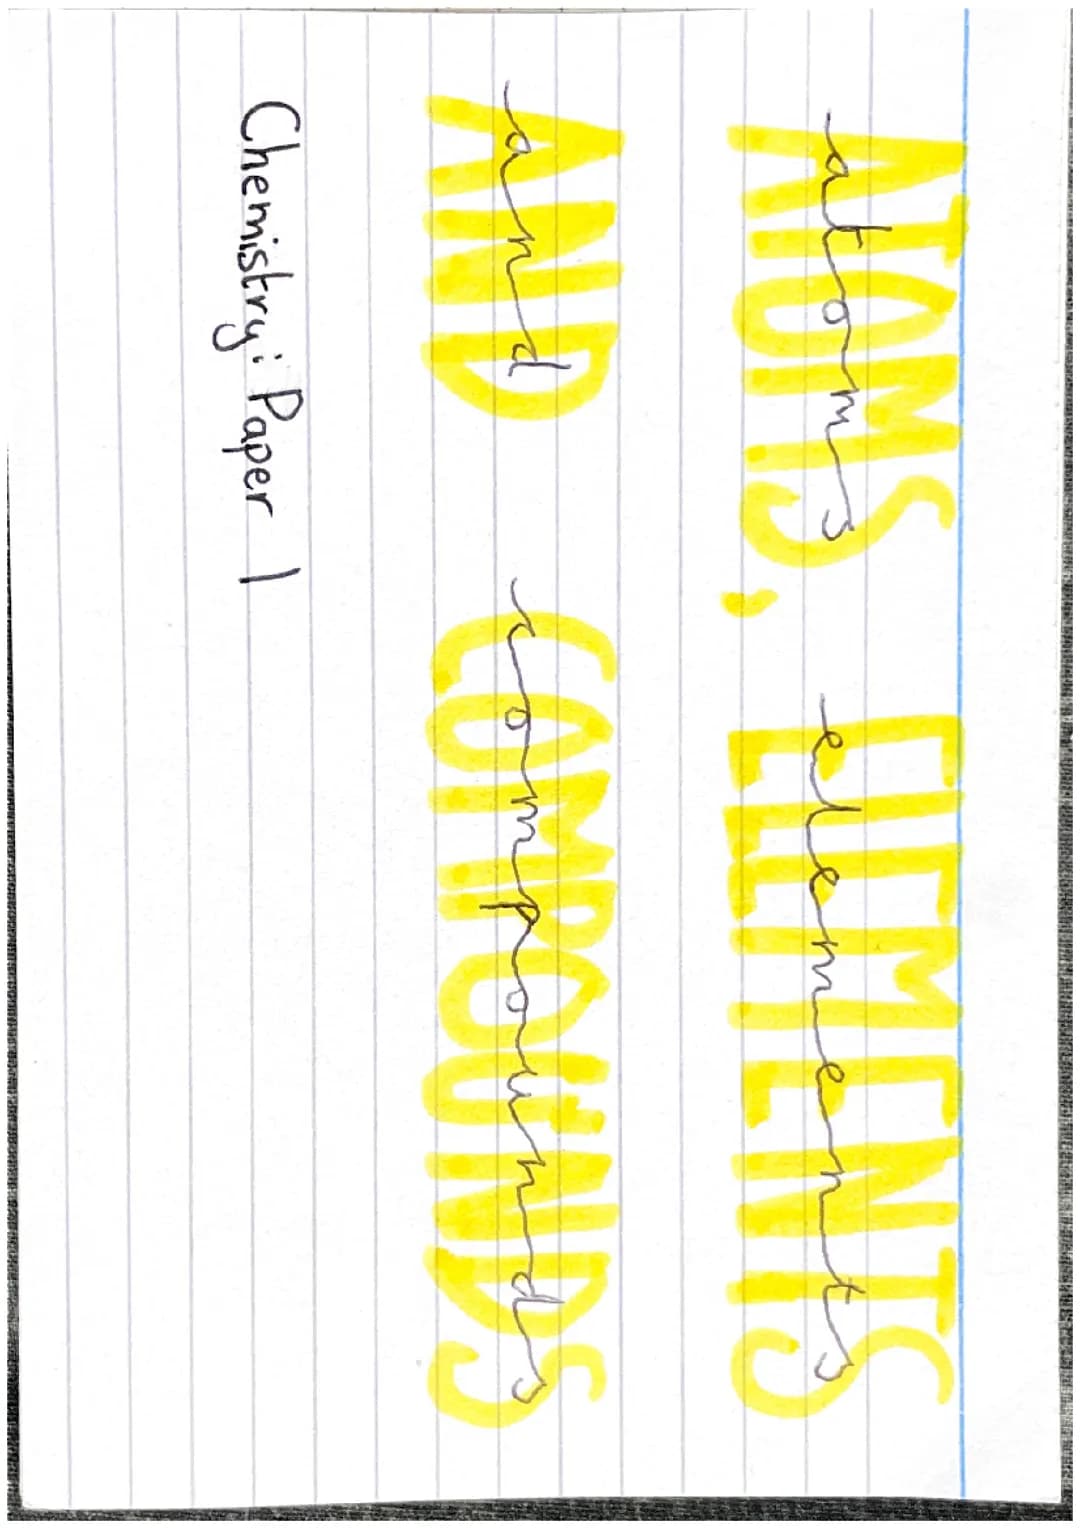 ATOMS, ELEMENTS
atoms elements
AND COMPOUNDS
and compounds
Chemistry: Paper 1